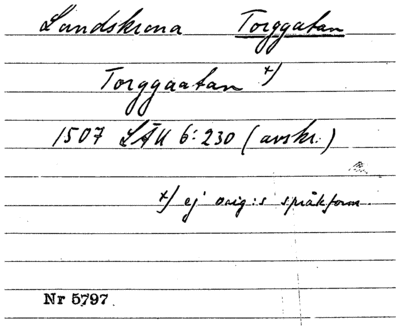 Landskrona Torggatan
Torggaatan x)
1507 LÄU 6:230 (avskr.)
x) ej orig:s språkform.
Nr 5797